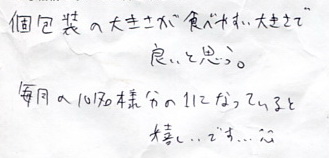 個包装の大きさが食べやすい大きさで
良いと思う。
毎月の 様分の1になっていると
嬉しいです…